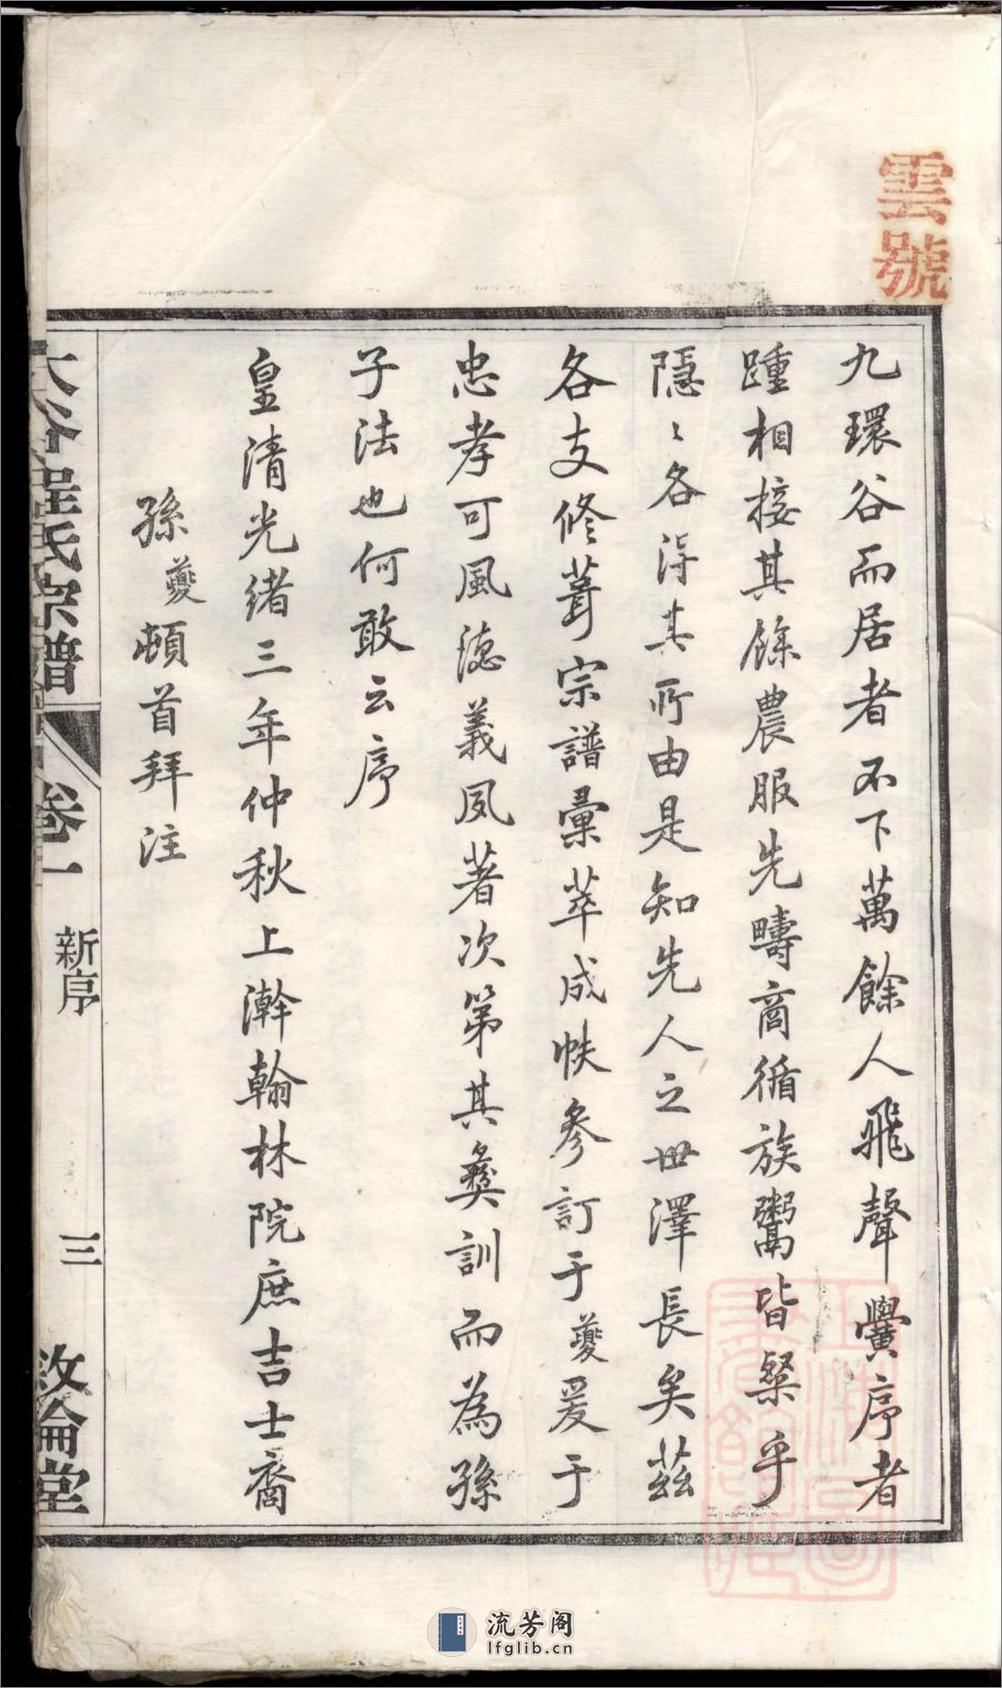 雲號
九環谷而居者不下萬餘人飛聲黌序者
踵相接其餘農服先疇商循族鬻皆粲乎
隱〻各得其所由是知先人之世澤長矣茲
各支修葺宗譜彙萃成帙參訂于夔爰于
忠孝可風德義夙著次第其彝訓而為孫
子法也何敢云序
皇清光緒三年仲秋上澣翰林院庶吉士裔
孫夔頓首拜注
大谷程氏宗譜 卷一 新序 三 敘倫堂
流芳阁
lfglib.cn